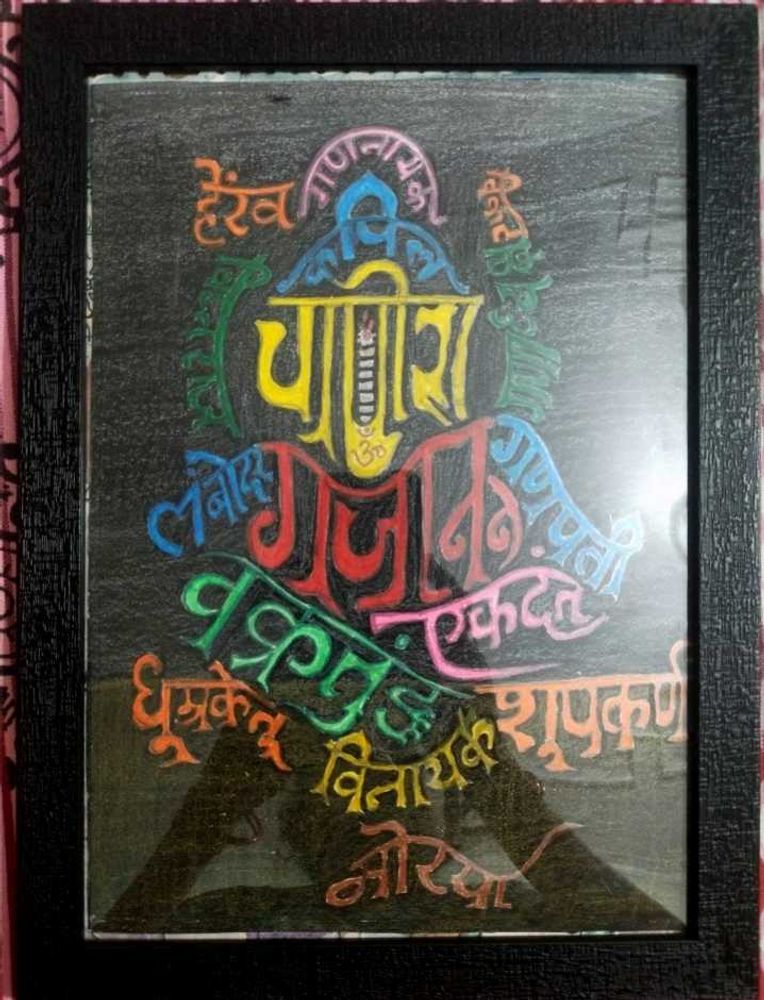 गणनायक
हेरंब
कपिल
लंबोदर
गणपती
गजानन
ॐ
वक्रतुंड
एकदंत
धुम्रकेतू
शूपकर्ण
विनायक
मोरया